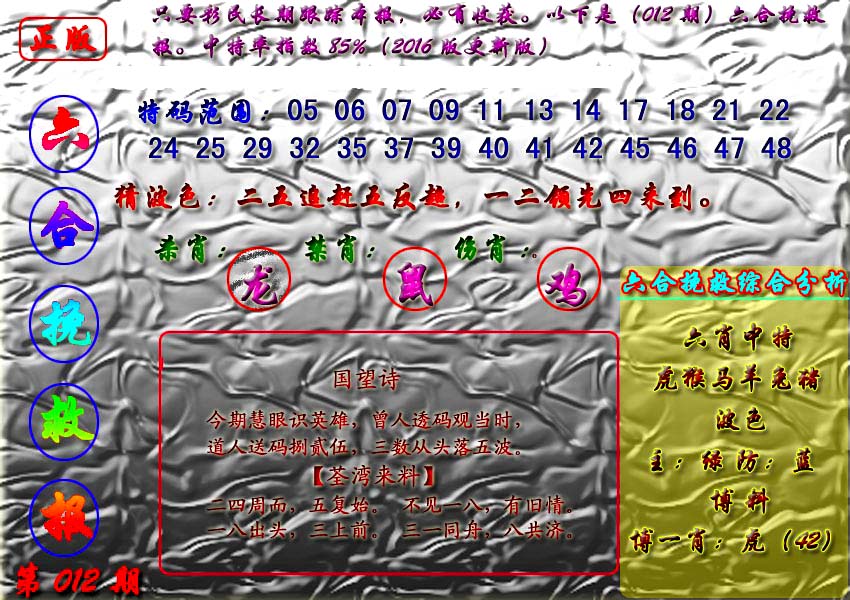 正版
只要彩民长期跟踪本报，必有收获。以下是（012期）六合挽救
报。中特率指数85%（2016版更新版）
六合挽救报
第012期
特码范围：05 06 07 09 11 13 14 17 18 21 22
24 25 29 32 35 37 39 40 41 42 45 46 47 48
猜波色：二五追赶五反超，一二领先四来到。
杀肖：龙 禁肖：鼠 伤肖：。鸡
国望诗
今期慧眼识英雄，曾人透码观当时，
道人送码捌贰伍，三数从头落五波。
【荃湾来料】
二四周而，五复始。 不见一八，有旧情。
一八出头，三上前。 三一同舟，八共济。
六合挽救综合分析
六肖中特
虎猴马羊兔猪
波色
主：绿防：蓝
博料
博一肖：虎（42）